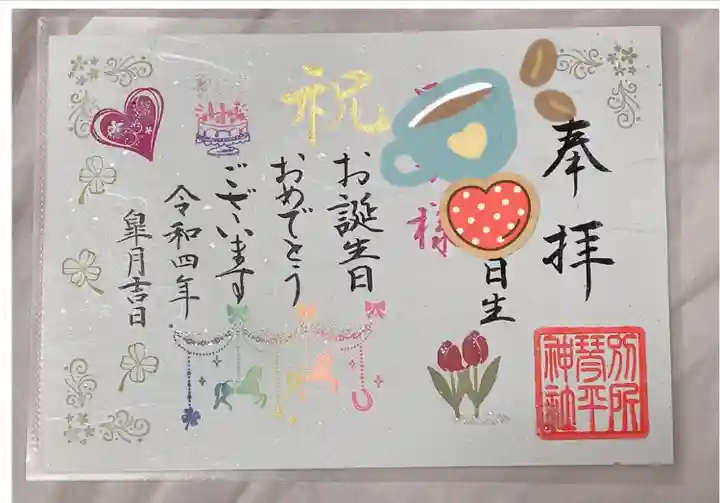 奉拝
日生
様
祝
お誕生日
おめでとう
ございます
令和四年
皐月吉日
別所
琴平
神社